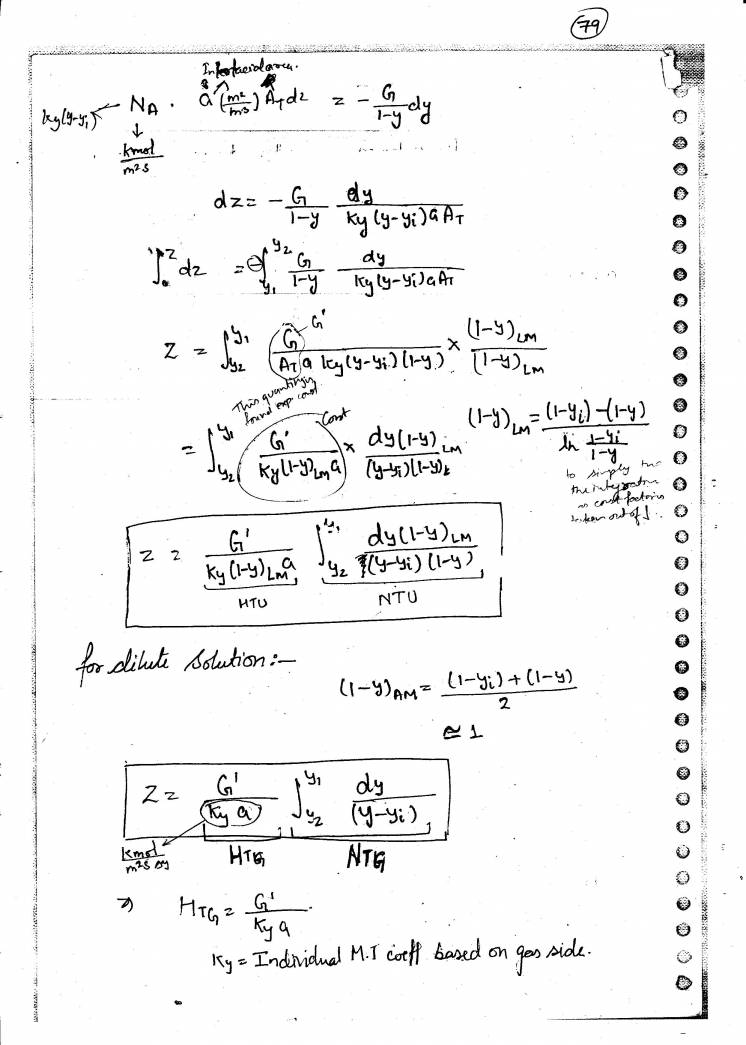 79
Interfacial area.
ky(y-yi) ← NA · a (m²/m³) AT dz = - G/(1-y) dy
↓
kmol/m²s
dz = - G/(1-y) dy/(ky (y-yi) a AT)
∫₀^Z dz = ⊖∫_{y1}^{y2} G/(1-y) dy/(ky(y-yi) a AT)
Z = ∫_{y2}^{y1} G/(AT a ky(y-yi)(1-y)) × (1-y)LM/(1-y)LM
G'
This quantity is
found exp const
= ∫_{y2}^{y1} G'/(ky(1-y)LM a) × dy(1-y)LM/((y-yi)(1-y))
Const
(1-y)LM = ((1-yi)-(1-y))/(ln (1-yi)/(1-y))
to simply
the integration
as const factor is
taken out of ∫..
Z = G'/(ky(1-y)LM a) ∫_{y2}^{y1} dy(1-y)LM/((y-yi)(1-y))
HTU NTU
for dilute solution:-
(1-y)AM = ((1-yi)+(1-y))/2
≅ 1
Z = G'/(ky a) ∫_{y2}^{y1} dy/(y-yi)
kmol/m²s Δy
HTG NTG
⇒ HTG = G'/(ky a).
ky = Individual M.T coeff based on gas side.